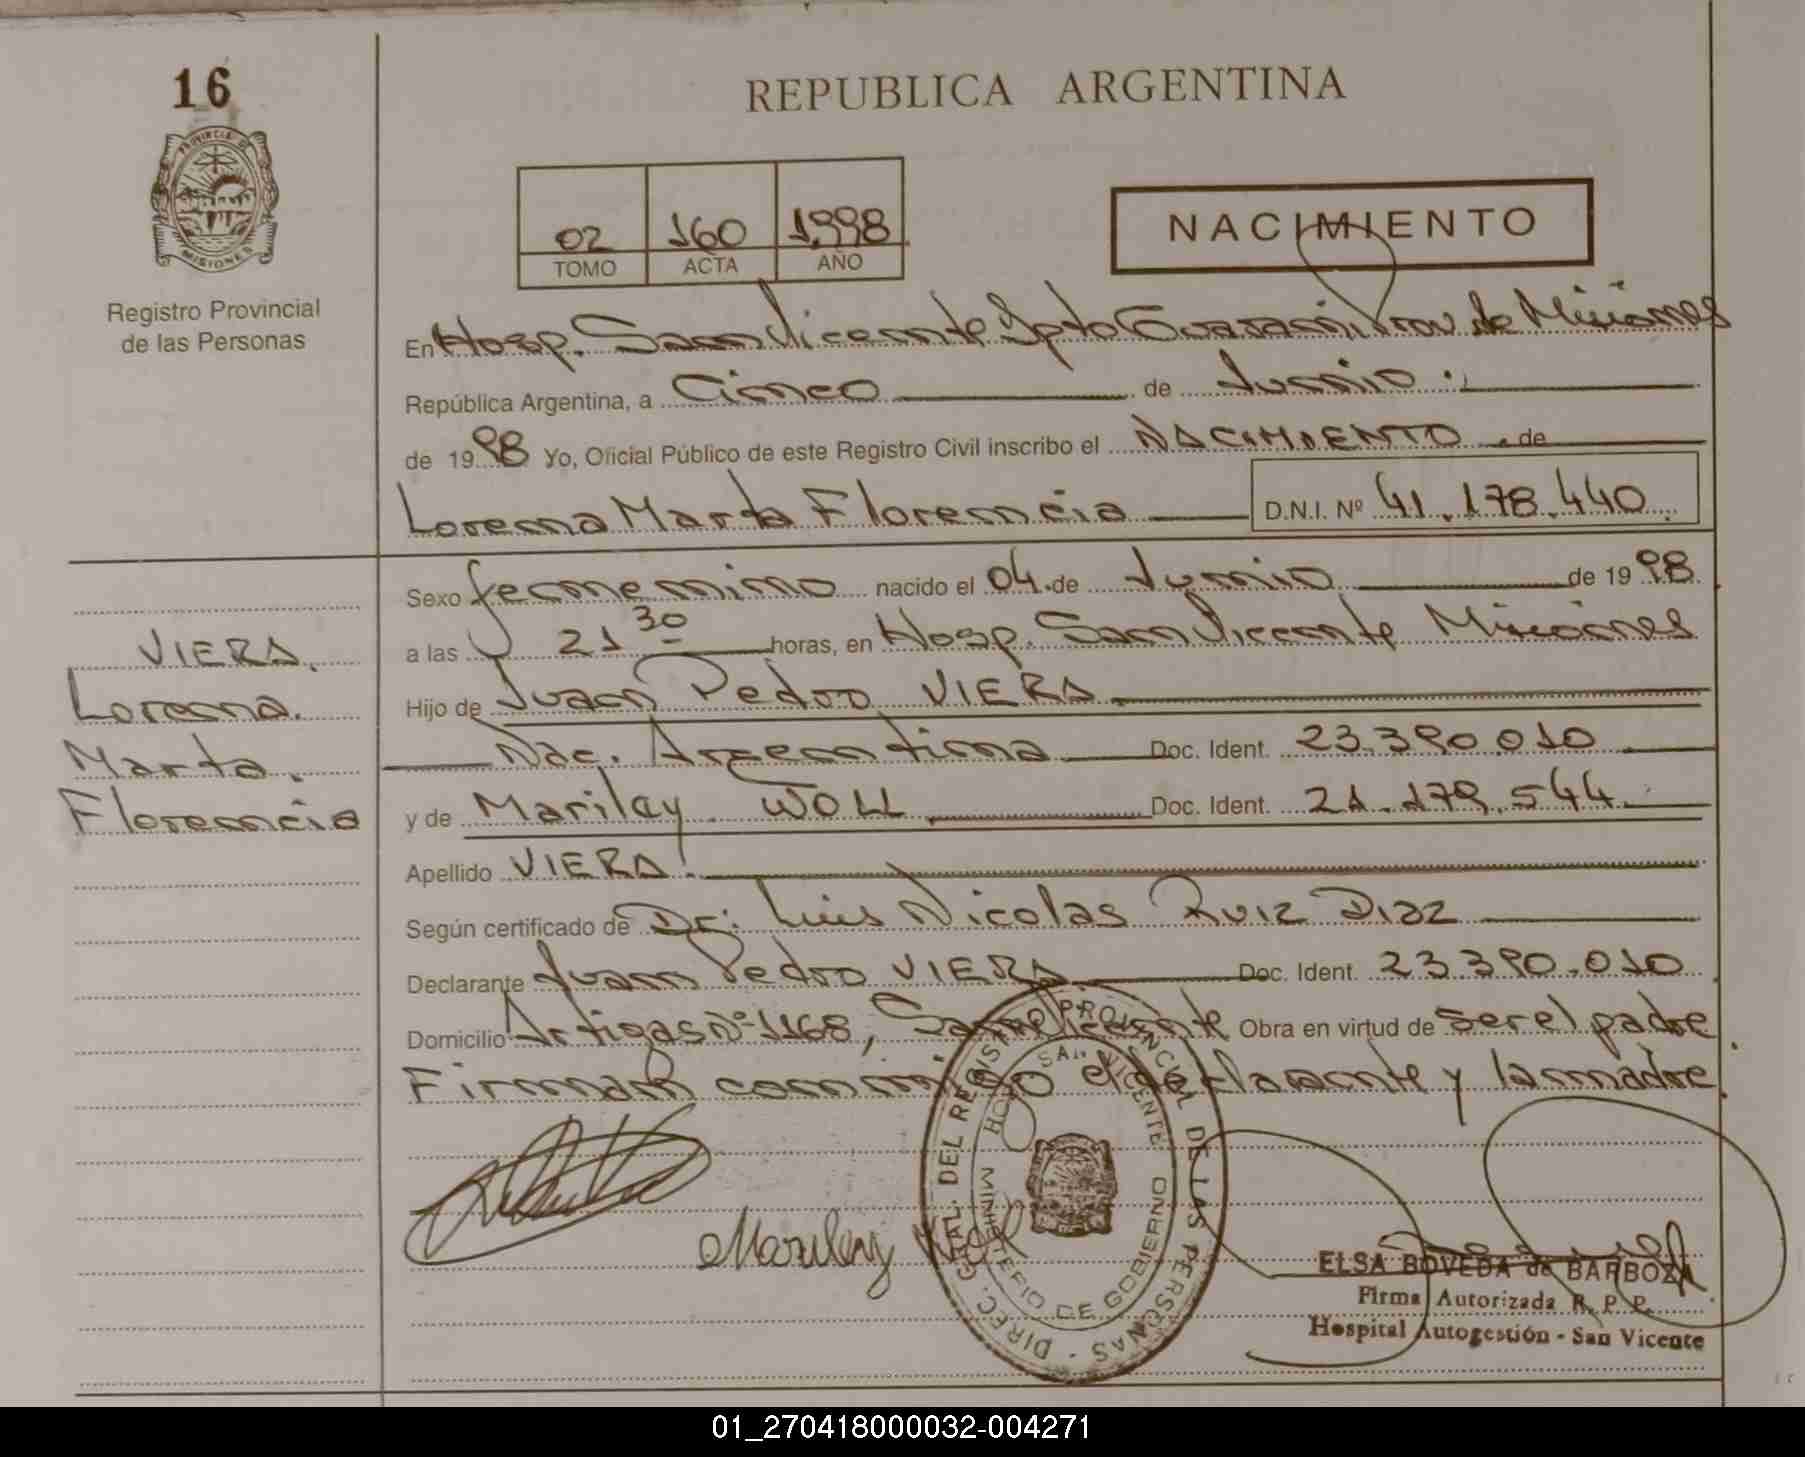 16
PROVINCIA DE
MISIONES
Registro Provincial
de las Personas
REPUBLICA ARGENTINA
02 160 1998
TOMO ACTA AÑO
NACIMIENTO
En Hosp. San Vicente Dpto Guarani Prov. de Misiones
República Argentina, a Cinco de Junio
de 1998 Yo, Oficial Público de este Registro Civil inscribo el NACIMIENTO de
Lorena Marta Florencia D.N.I. Nº 41.178.440
Sexo femenino nacido el 04 de Junio de 1998
a las 21 30 horas, en Hosp. San Vicente Misiones
Hijo de Juan Pedro VIERA
Nac. Argentina Doc. Ident. 23.390.010
y de Mariley WOLL Doc. Ident. 21.179.544
Apellido VIERA
Según certificado de Dr. Luis Nicolas Ruiz Diaz
Declarante Juan Pedro VIERA Doc. Ident. 23.390.010
Domicilio Artigas Nº 1168, San Vicente Obra en virtud de ser el padre
Firman conmigo el declarante y la madre
VIERA.
Lorena.
Marta.
Florencia
Mariley
DIREC. GRAL. DEL REGISTRO PROVINCIAL DE LAS PERSONAS
SAN VICENTE
MINISTERIO DE GOBIERNO
ELSA BOVEDA de BARBOZA
Firma Autorizada R. P. P.
Hospital Autogestión - San Vicente
01_270418000032-004271